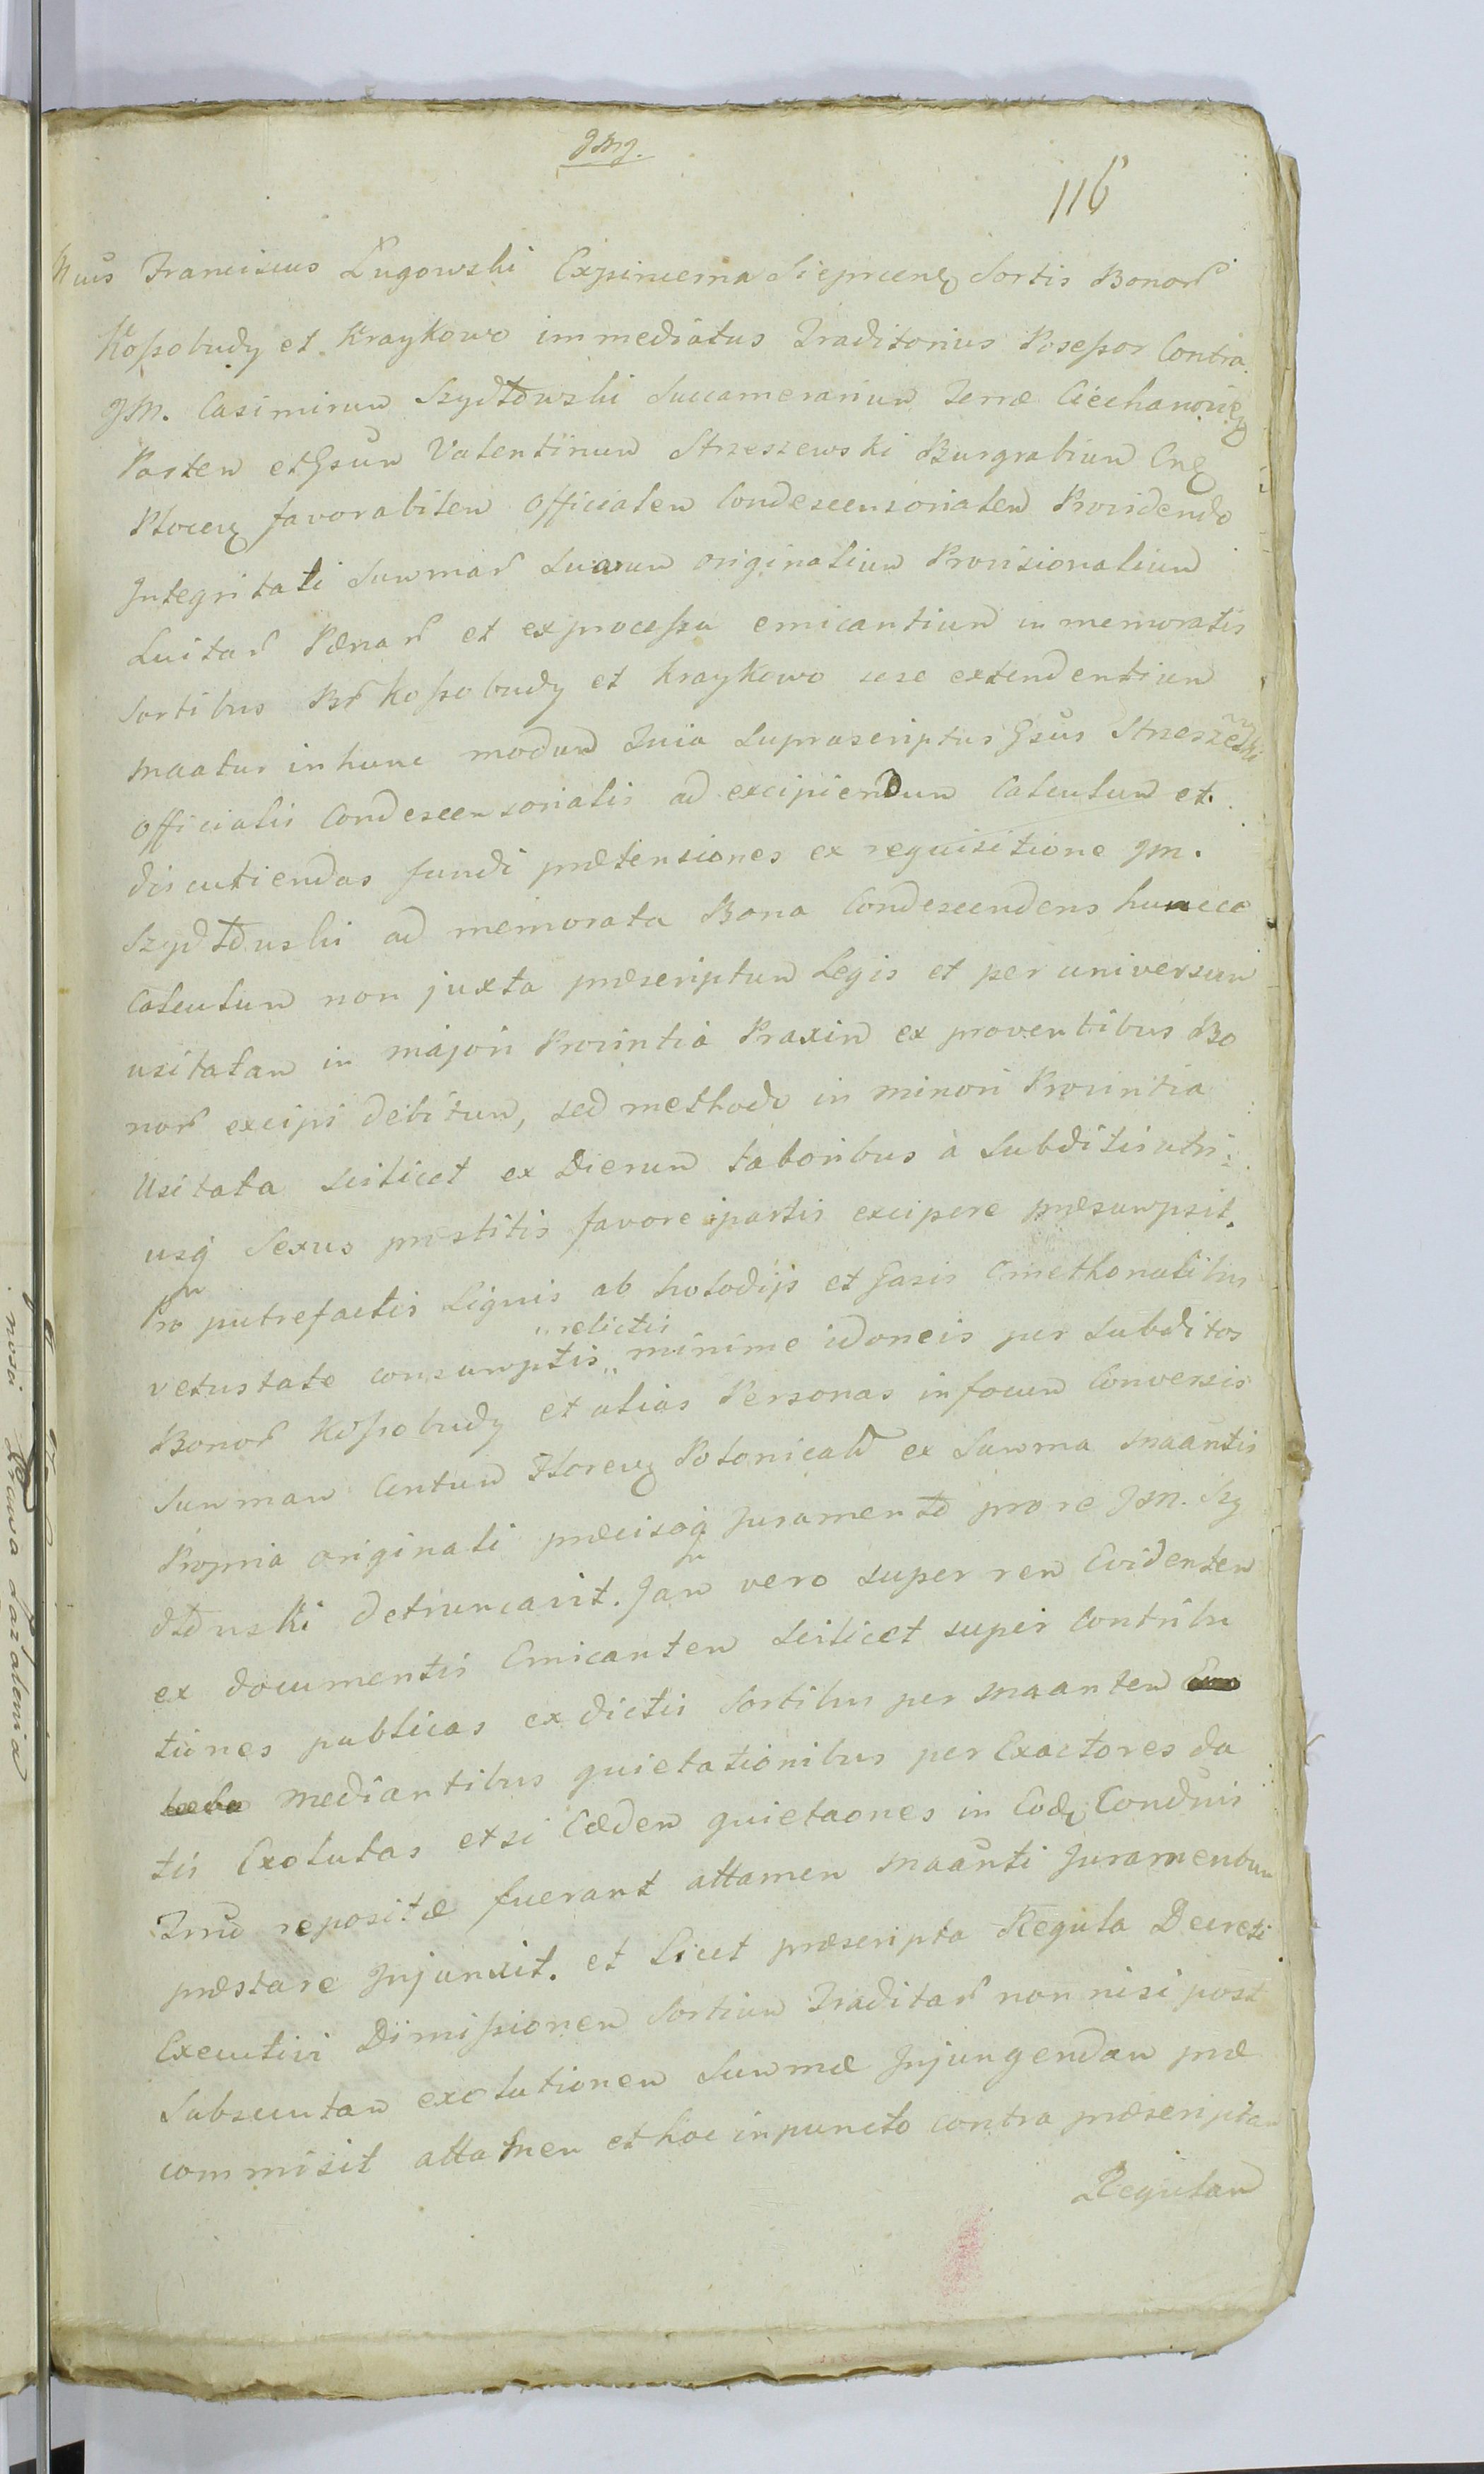 116
Franciscus Ługowski Expincerna Sieprcen Sortis Bonor
Kossobudy et Kraykowo immediatus Traditorius Posessor Contra
JM. Casimirum Szydłowski Succamerarium Terræ Ciechanovien
Partem et Gsum Valentinum Strzeszewski Burgrabium
Plocen favorabilem Officialem Condescensorialem Providendo
Integritati Summar Suarum originalium Provisionalium
Luitar Pænar et ex processu emicantium in memoratis
Sortibus Br Kossobudy et Kraykowo sese extendentium
Maatur in hunc modum Quia Suprascriptus Gsus Strzeszewski
Officialis Condescensorialis ad excipiendum Calculum et
discutiendas fundi prætensiones ex requisitione JM.
Szydłowski ad memorata Bona Condescendens huncce
Calculum non juxta præscriptum Legis et per universum
usitatam in majori Provintia Praxim ex proventibus Bo
nor excipi debitum, sed methodo in minori Provintia
Usitata scilicet ex Dierum laboribus à Subditis utri-
usq Sexus præstitis favore partis excipere præsumpsit.
Pro putrefactis Lignis ab hołodijs et Casis Cmethonalibus
relictis
vetustate consumptis minime idoneis per Subditos
Bonor Kossobudy et alias Personas in focum Conversis
Summam Centum Floren Polonical ex Summa Maantis
Propria originali præcisoq Juramento pro re JM. Szy
dłowski detruncavit. Jam vero super rem Evidentem
ex documentis Emicantem Scilicet super Contribu
tiones publicas ex dictis Sortibus per Maantem
mediantibus quietationibus per Exactores da
tis Exolutas etsi Eædem quietaones in Eodem Condnis
Trmo repositæ fuerant attamen Maanti Juramentum
præstare Injunxit. et Licet præscripta Regula Decreti
Executivi Dimissionem Sortium Traditar non nisi post
Subsecutam exolutionem Summæ Injungendam præ
commisit attamen et hoc in puncto contra præscriptam
Regulam